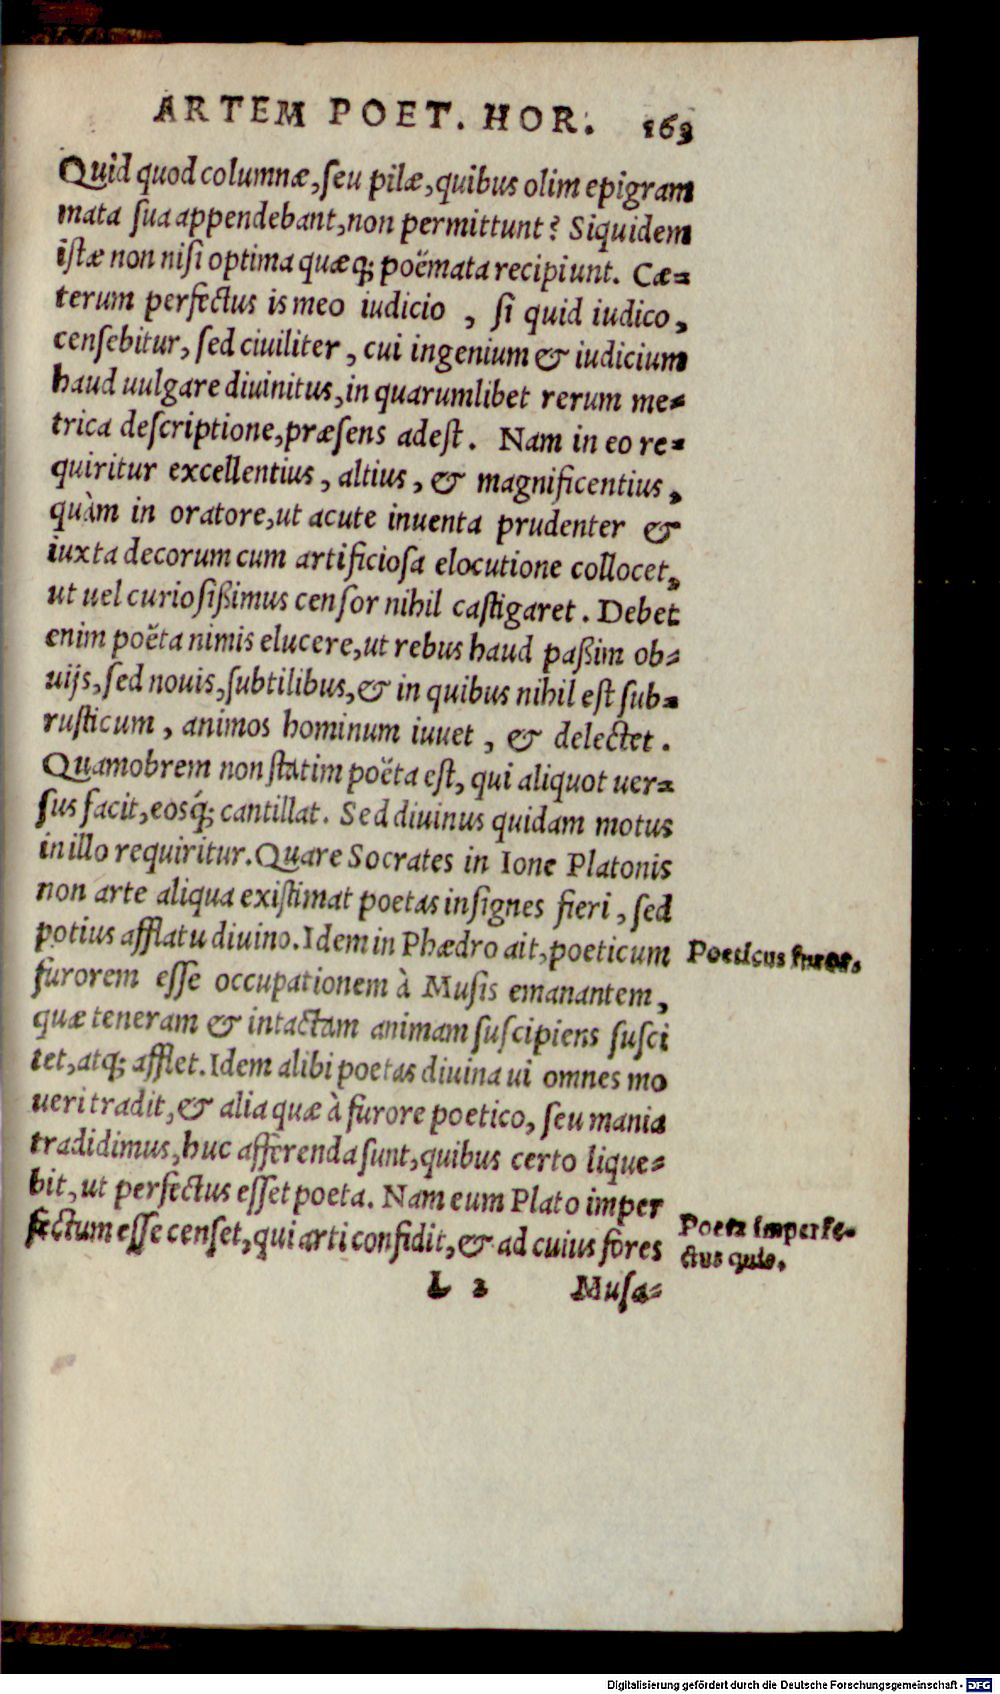 ARTEM POET. HOR. 163
Quid quod columnæ, ſeu pilæ, quibus olim epigram
mata ſua appendebant, non permittunt? Siquidem
iſtæ non niſi optima quæq; poëmata recipiunt. Cæ-
terum perfectus is meo iudicio, ſi quid iudico,
cenſebitur, ſed ciuiliter, cui ingenium & iudicium
haud uulgare diuinitus, in quarumlibet rerum me-
trica deſcriptione, præſens adeſt. Nam in eo re-
quiritur excellentius, altius, & magnificentius,
quàm in oratore, ut acute inuenta prudenter &
iuxta decorum cum artificioſa elocutione collocet,
ut uel curioſißimus cenſor nihil caſtigaret. Debet
enim poëta nimis elucere, ut rebus haud paßim ob-
uijs, ſed nouis, ſubtilibus, & in quibus nihil eſt ſub-
ruſticum, animos hominum iuuet, & delectet.
Quamobrem non ſtatim poëta eſt, qui aliquot uer-
ſus facit, eosq́; cantillat. Sed diuinus quidam motus
in illo requiritur. Quare Socrates in Ione Platonis
non arte aliqua exiſtimat poetas inſignes fieri, ſed
potius afflatu diuino. Idem in Phædro ait, poeticum
Poeticus furor.
furorem eſſe occupationem à Muſis emanantem,
quæ teneram & intactam animam ſuſcipiens ſuſci
tet, atq; afflet. Idem alibi poetas diuina ui omnes mo
ueri tradit, & alia quæ à furore poetico, ſeu mania
tradidimus, huc afferenda ſunt, quibus certo lique-
bit, ut perfectus eſſet poeta. Nam eum Plato imper
fectum eſſe cenſet, qui arti confidit, & ad cuius fores
Poeta imperfe-
ctus quis.
L 2 Muſa-
Digitalisierung gefördert durch die Deutsche Forschungsgemeinschaft - DFG